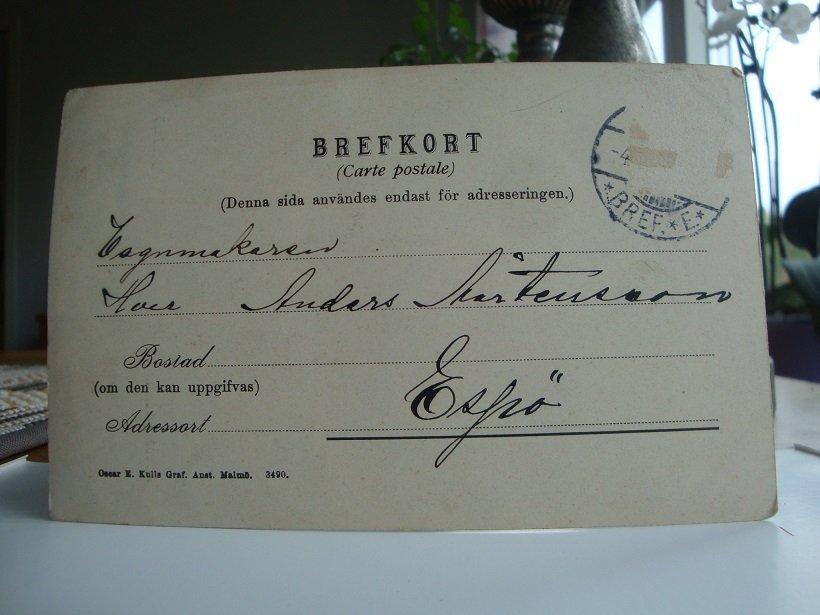 BREFKORT
(Carte postale)
(Denna sida användes endast för adresseringen.)
-4
*BREF.*E*
Vagnmakaren
Herr Anders Mårtensson
Bostad
(om den kan uppgifvas)
Espö
Adressort
Oscar E. Kulls Graf. Anst. Malmö. 3490.